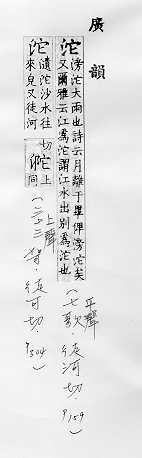 廣韻
沱
滂沱大雨也詩云月離于畢俾滂沱矣
又爾雅云江爲沱謂江水出別爲沱也
平聲
(七歌·徒河切·P159)
沱
瀢沱沙水往
來皃又徒河
切
上
同
上聲
(三十三哿·徒可切·P304)